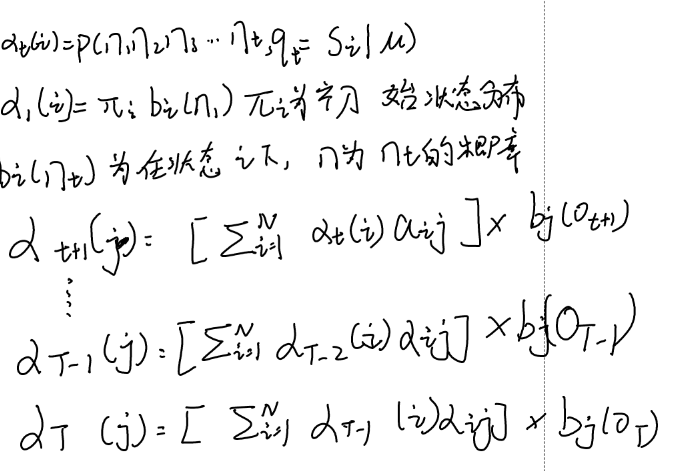 α_t(i)=P(η1η2η3…ηt,q_t=Si|μ)
α_1(i)=πi bi(η1) πi为初始状态分布
bi(ηt)为在状态i下,η为ηt的概率
α_{t+1}(j)=[∑_{i=1}^N α_t(i)aij]×bj(O_{t+1})
⋮
α_{T-1}(j)=[∑_{i=1}^N α_{T-2}(i)αij]×bj(O_{T-1})
α_T(j)=[∑_{i=1}^N α_{T-1}(i)αij]×bj(O_T)